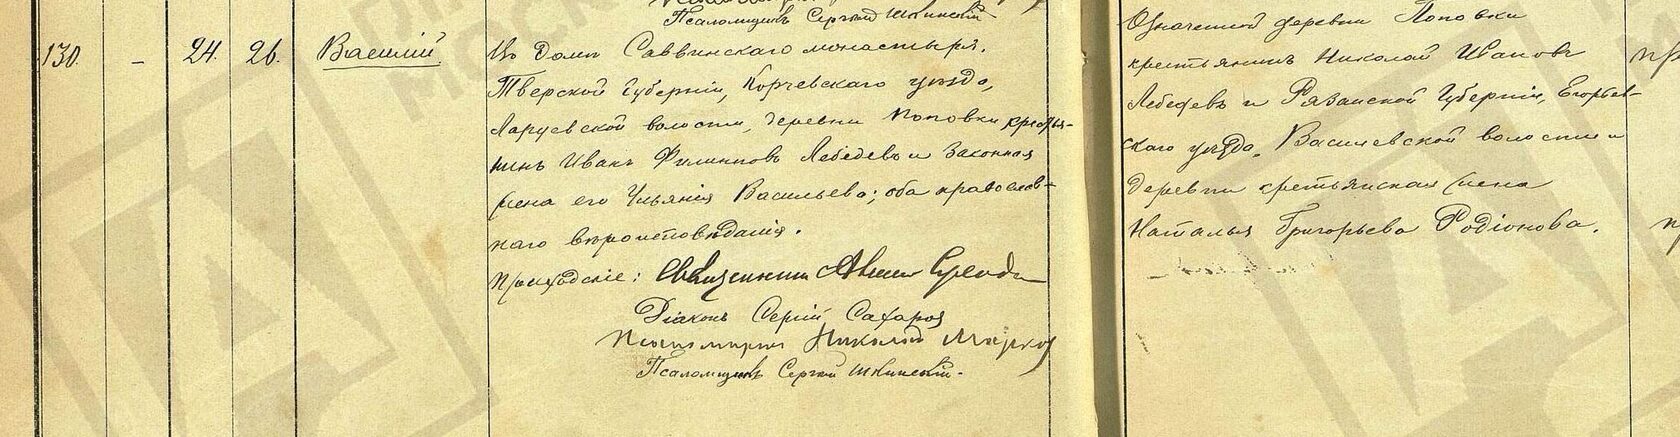 Псаломщикъ Сергѣй Шкинскій
130. - 24. 26. Василій.
Въ домѣ Саввинскаго монастыря.
Тверской губерніи, Корчевскаго уѣзда,
волости, деревни Поповки крестья-
нинъ Иванъ Филипповъ Лебедевъ и законная
жена его Ульянія Васильева; оба православ-
наго вѣроисповѣданія.
Приходскіе: Священникъ
Діаконъ Сергій Сахаровъ
Псаломщикъ Николай
Псаломщикъ Сергѣй Шкинскій.
Означенной деревни Поповки
крестьянинъ Николай Ивановъ
Лебедевъ и Рязанской губерніи, Егорьев-
скаго уѣзда, Василевской волости и
деревни крестьянская жена
Наталья Григорьева Родіонова.